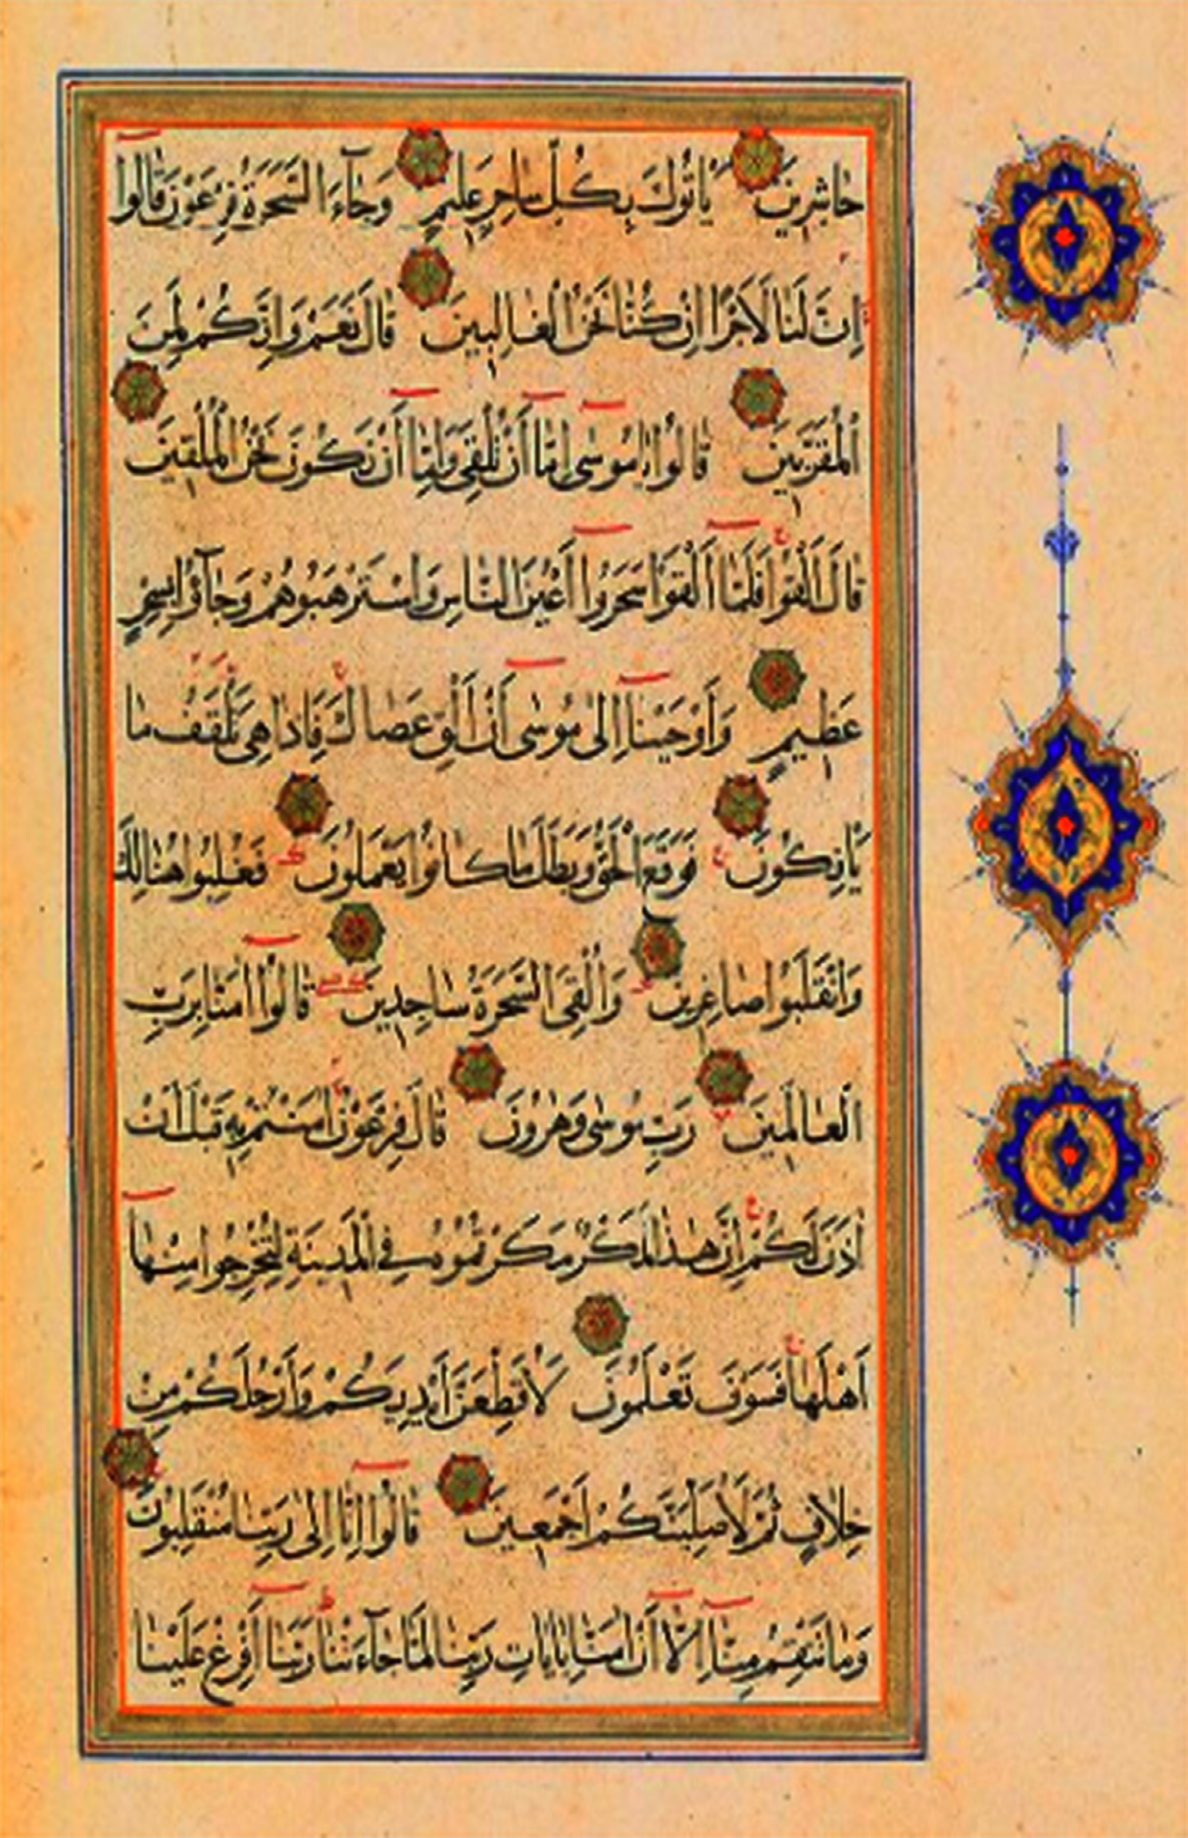 حَاشِرِينَ يَأْتُوكَ بِكُلِّ سَاحِرٍ عَلِيمٍ وَجَآءَ السَّحَرَةُ فِرْعَوْنَ قَالُوا
إِنَّ لَنَا لَأَجْرًا إِنْ كُنَّا نَحْنُ الْغَالِبِينَ قَالَ نَعَمْ وَإِنَّكُمْ لَمِنَ
الْمُقَرَّبِينَ قَالُوا يَا مُوسَى إِمَّا أَنْ تُلْقِيَ وَإِمَّا أَنْ نَكُونَ نَحْنُ الْمُلْقِينَ
قَالَ أَلْقُوا فَلَمَّا أَلْقَوْا سَحَرُوا أَعْيُنَ النَّاسِ وَاسْتَرْهَبُوهُمْ وَجَآؤُا بِسِحْرٍ
عَظِيمٍ وَأَوْحَيْنَا إِلَى مُوسَى أَنْ أَلْقِ عَصَاكَ فَإِذَا هِيَ تَلْقَفُ مَا
يَأْفِكُونَ فَوَقَعَ الْحَقُّ وَبَطَلَ مَا كَانُوا يَعْمَلُونَ فَغُلِبُوا هُنَالِكَ
وَانْقَلَبُوا صَاغِرِينَ وَأُلْقِيَ السَّحَرَةُ سَاجِدِينَ قَالُوا اٰمَنَّا بِرَبِّ
الْعَالَمِينَ رَبِّ مُوسَى وَهٰرُونَ قَالَ فِرْعَوْنُ اٰمَنْتُمْ بِهِ قَبْلَ أَنْ
اٰذَنَ لَكُمْ إِنَّ هٰذَا لَمَكْرٌ مَكَرْتُمُوهُ فِي الْمَدِينَةِ لِتُخْرِجُوا مِنْهَا
أَهْلَهَا فَسَوْفَ تَعْلَمُونَ لَأُقَطِّعَنَّ أَيْدِيَكُمْ وَأَرْجُلَكُمْ مِنْ
خِلَافٍ ثُمَّ لَأُصَلِّبَنَّكُمْ أَجْمَعِينَ قَالُوا إِنَّا إِلَى رَبِّنَا مُنْقَلِبُونَ
وَمَا تَنْقِمُ مِنَّآ إِلَّا أَنْ اٰمَنَّا بِاٰيَاتِ رَبِّنَا لَمَّا جَآءَتْنَا رَبَّنَا أَفْرِغْ عَلَيْنَا